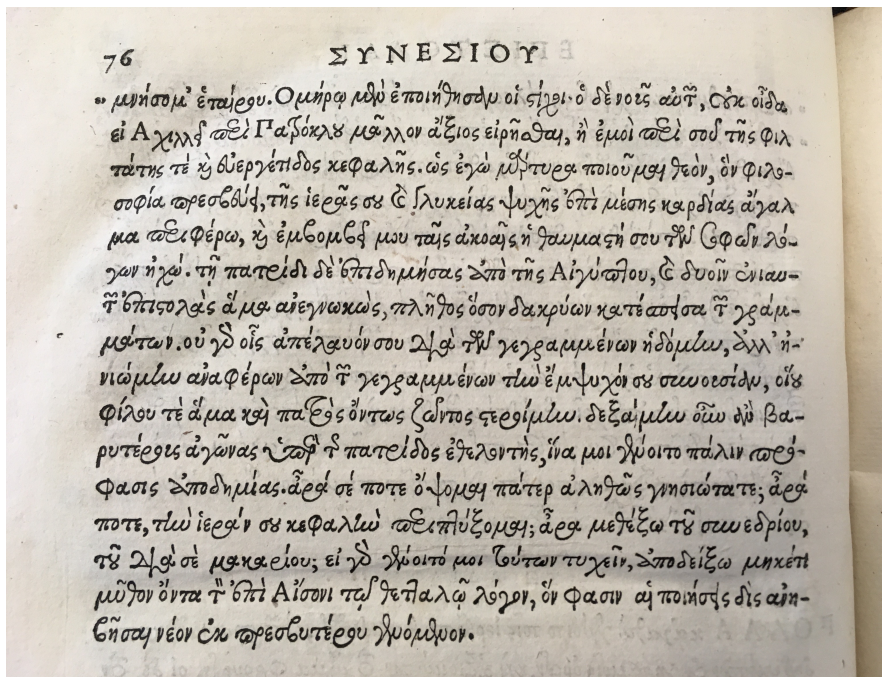 76 ΣΥΝΕΣΙΟΥ
" μνήσομ' ἑταίρου. Ομήρῳ μὲν ἐποιήθησαν οἱ στίχοι· ὁ δὲ νοῦς αὐτῶν, οὐκ οἶδα
εἰ Αχιλλεῖ περὶ Πατρόκλου μᾶλλον ἄξιος εἰρῆσθαι, ἢ ἐμοὶ περὶ σοῦ τῆς φιλ
τάτης τὲ καὶ εὐεργέτιδος κεφαλῆς. ὡς ἐγὼ μάρτυρα ποιοῦμαι θεὸν, ὃν φιλο-
σοφία πρεσβεύει, τῆς ἱερᾶς σου καὶ γλυκείας ψυχῆς ἐπὶ μέσης καρδίας ἄγαλ
μα περιφέρω, καὶ ἐμβομβεῖ μου ταῖς ἀκοαῖς ἡ θαυμαστή σου τῶν σοφῶν λό-
γων ἠχώ. τῇ πατρίδι δὲ ἐπιδημήσας ἀπὸ τῆς Αἰγύπτου, καὶ δυοῖν ἐνιαυ-
τῶν ἐπιστολὰς ἅμα ἀνεγνωκὼς, πλῆθος ὅσον δακρύων κατέσπεισα τῶν γραμ-
μάτων. οὐ γὰρ οἷς ἀπέλαυόν σου διὰ τῶν γεγραμμένων ἡδόμην, ἀλλ' ἠ-
νιώμην ἀναφέρων ἀπὸ τῶν γεγραμμένων τὴν ἔμψυχόν σου συνουσίαν, οἵου
φίλου τὲ ἅμα καὶ πατρὸς ὄντως ζῶντος στεροίμην. δεξαίμην οὖν ἂν βα-
ρυτέρους ἀγῶνας ὑπὲρ τῆς πατρίδος ἐθελοντὴς, ἵνα μοι γένοιτο πάλιν πρό-
φασις ἀποδημίας. ἆρά σέ ποτε ὄψομαι πάτερ ἀληθῶς γνησιώτατε; ἆρά
ποτε, τὴν ἱεράν σου κεφαλὴν περιπτύξομαι; ἆρα μεθέξω τοῦ συνεδρίου,
τοῦ διὰ σὲ μακαρίου; εἰ γὰρ γένοιτό μοι τούτων τυχεῖν, ἀποδείξω μηκέτι
μῦθον ὄντα τὸν ἐπὶ Αἴσονι τῷ θετταλῷ λόγον, ὅν φασιν αἱ ποιήσεις δὶς ἀνη-
βῆσαι νέον ἐκ πρεσβυτέρου γενόμενον.